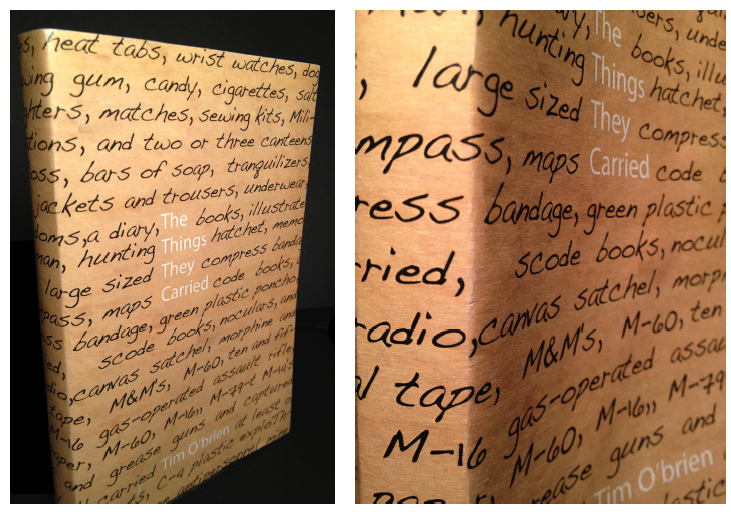 heat tabs, wrist watches, dog
wing gum, candy, cigarettes, salt
ghters, matches, sewing kits, Mili-
tions, and two or three canteens
oss, bars of soap, tranquilizers
jackets and trousers, underwear,
doms, a diary, The books, illustrate
man, hunting Things hatchet, memo
large sized They compress banda
pass, maps Carried code books,
ss bandage, green plastic poncho,
ed, scode books, noculars, and
dio, canvas satchel, morphine an
tape, M&M's, M-60, ten and fif-
M-16 gas-operated assault rifle,
aper, M-60, M-16,, M-79-t M-14's
and grease guns and capture
carried Tim O'brien at least o
ts, C-4 plastic explo
antipersonnel mine
hunting The books, illu
large sized Things hatchet,
mpass, maps They compress
ress Carried code b
bandage, green plastic p
rried, scode books, nocul
radio, canvas satchel, morph
l tape, M&M's, M-60, ten
M-16 gas-operated assau
M-60, M-16,, M-79
r, grease guns and
Tim O'brien
plastic